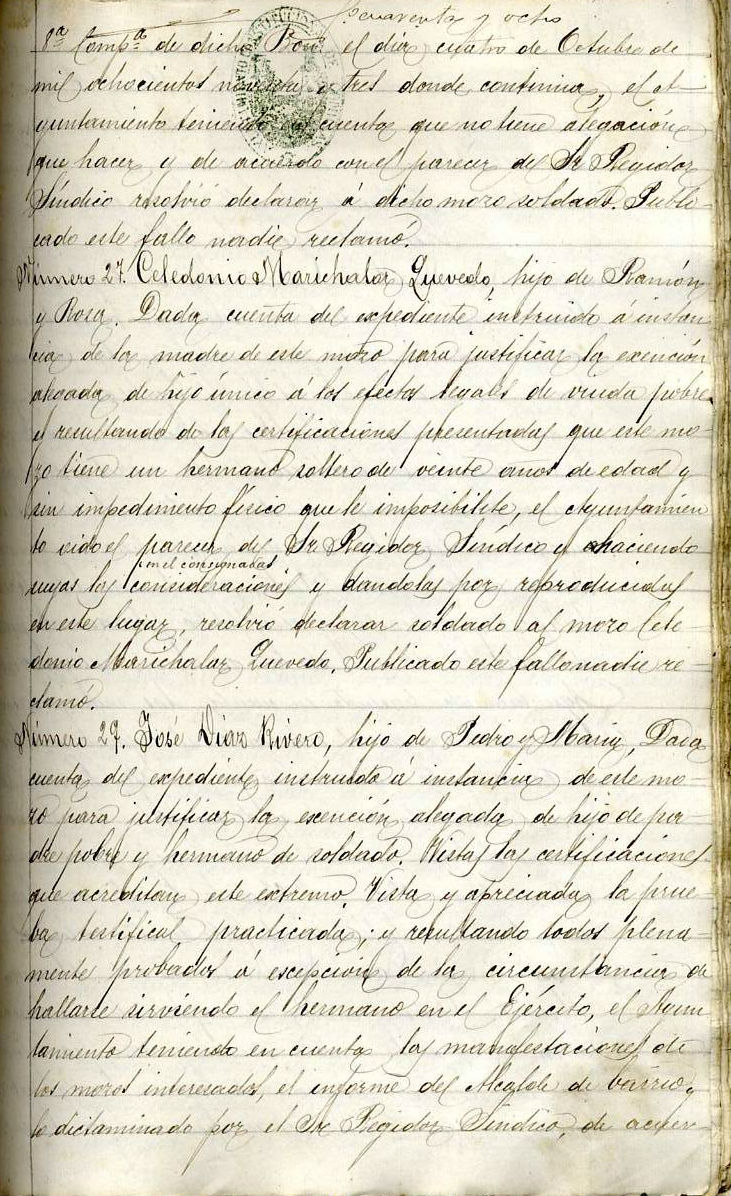 cuarenta y ocho
8ª Compª de dicho Bon el día cuatro de Octubre de
mil ochocientos noventa y tres donde continua, el A-
yuntamiento teniendo en cuenta que no tiene alegación
que hacer y de acuerdo con el parecer del Sr Regidor
Síndico resolvió declarar á dicho mozo soldado. Publi-
cado este fallo nadie reclamó.
Número 27. Celedonio Marichalar Quevedo, hijo de Ramón
y Rosa. Dada cuenta del expediente instruido á instan
cia de la madre de este mozo para justificar la exención
alegada de hijo único á los efectos legales de viuda pobre
y resultando de las certificaciones presentadas que este mo-
zo tiene un hermano soltero de veinte años de edad y
sin impedimento físico que le imposibilite, el Ayuntamien
to oido el parecer del Sr Regidor Síndico y haciendo
en el consignadas
suyas las consideraciones y dandolas por reproducidas
en este lugar, resolvió declarar soldado al mozo Cele-
donio Marichalar Quevedo. Publicado este fallo nadie re-
clamó.
Número 29. José Diaz Rivero, hijo de Pedro y Maria, Dada
cuenta del expediente instruido á instancia de este mo-
zo para justificar la escención alegada de hijo de pa-
dre pobre y hermano de soldado. Vistas las certificaciones
que acreditan este extremo. Vista y apreciada la prue-
ba testifical practicada; y resultando todos plena-
mente probados á escepción de la circunstancia de
hallarse sirviendo el hermano en el Ejército, el Ayun
tamiento teniendo en cuenta las manifestaciones de
los mozos interesados, el informe del Alcalde de barrio y
lo dictaminado por el Sr Regidor Síndico, de acuer-